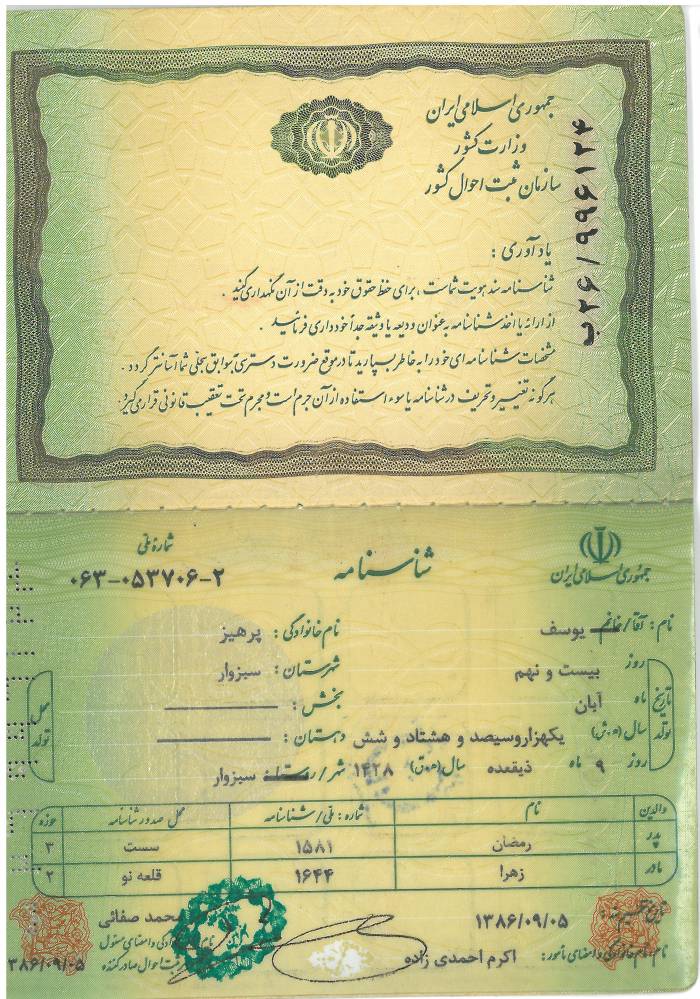 جمهوری اسلامی ایران
وزارت کشور
سازمان ثبت احوال کشور
ب۲۶/۹۹۶۱۲۴
یادآوری :
شناسنامه سند هویت شماست ، برای حفظ حقوق خود به دقت از آن نگهداری کنید .
از ارائه یا اخذ شناسنامه به عنوان ودیعه یا وثیقه جداً خودداری فرمائید .
مشخصات شناسنامه ای خود را به خاطر بسپارید تا در موقع ضرورت دسترسی به سوابق سجلی شما آسانتر گردد .
هرگونه تغییر و تحریف در شناسنامه یا سوء استفاده از آن جرم است و مجرم تحت تعقیب قانونی قرار می گیرد.
جمهوری اسلامی ایران
شناسنامه
شمارهٔ ملی
۰۶۳-۰۵۳۷۰۶-۲
نام : آقا/خانم یوسف نام خانوادگی : پرهیز
تاریخ تولد روز بیست و نهم محل تولد شهرستان : سبزوار
ماه آبان بخش :
سال (ه.ش) یکهزاروسیصد و هشتاد و شش دهستان :
روز ۹ ماه ذیقعده سال (ه.ق) ۱۴۲۸ شهر/روستا سبزوار
والدین نام شماره : ملی/شناسنامه محل صدور شناسنامه حوزه
پدر رمضان ۱۵۸۱ سست ۳
مادر زهرا ۱۶۴۴ قلعه نو ۲
تاریخ تنظیم سند : ۱۳۸۶/۰۹/۰۵ محمد صفائی
نام، نام خانوادگی و امضای مأمور : اکرم احمدی زاده
نام خانوادگی و امضای مسئول
ثبت احوال صادرکننده
۱۳۸۶/۰۹/۰۵